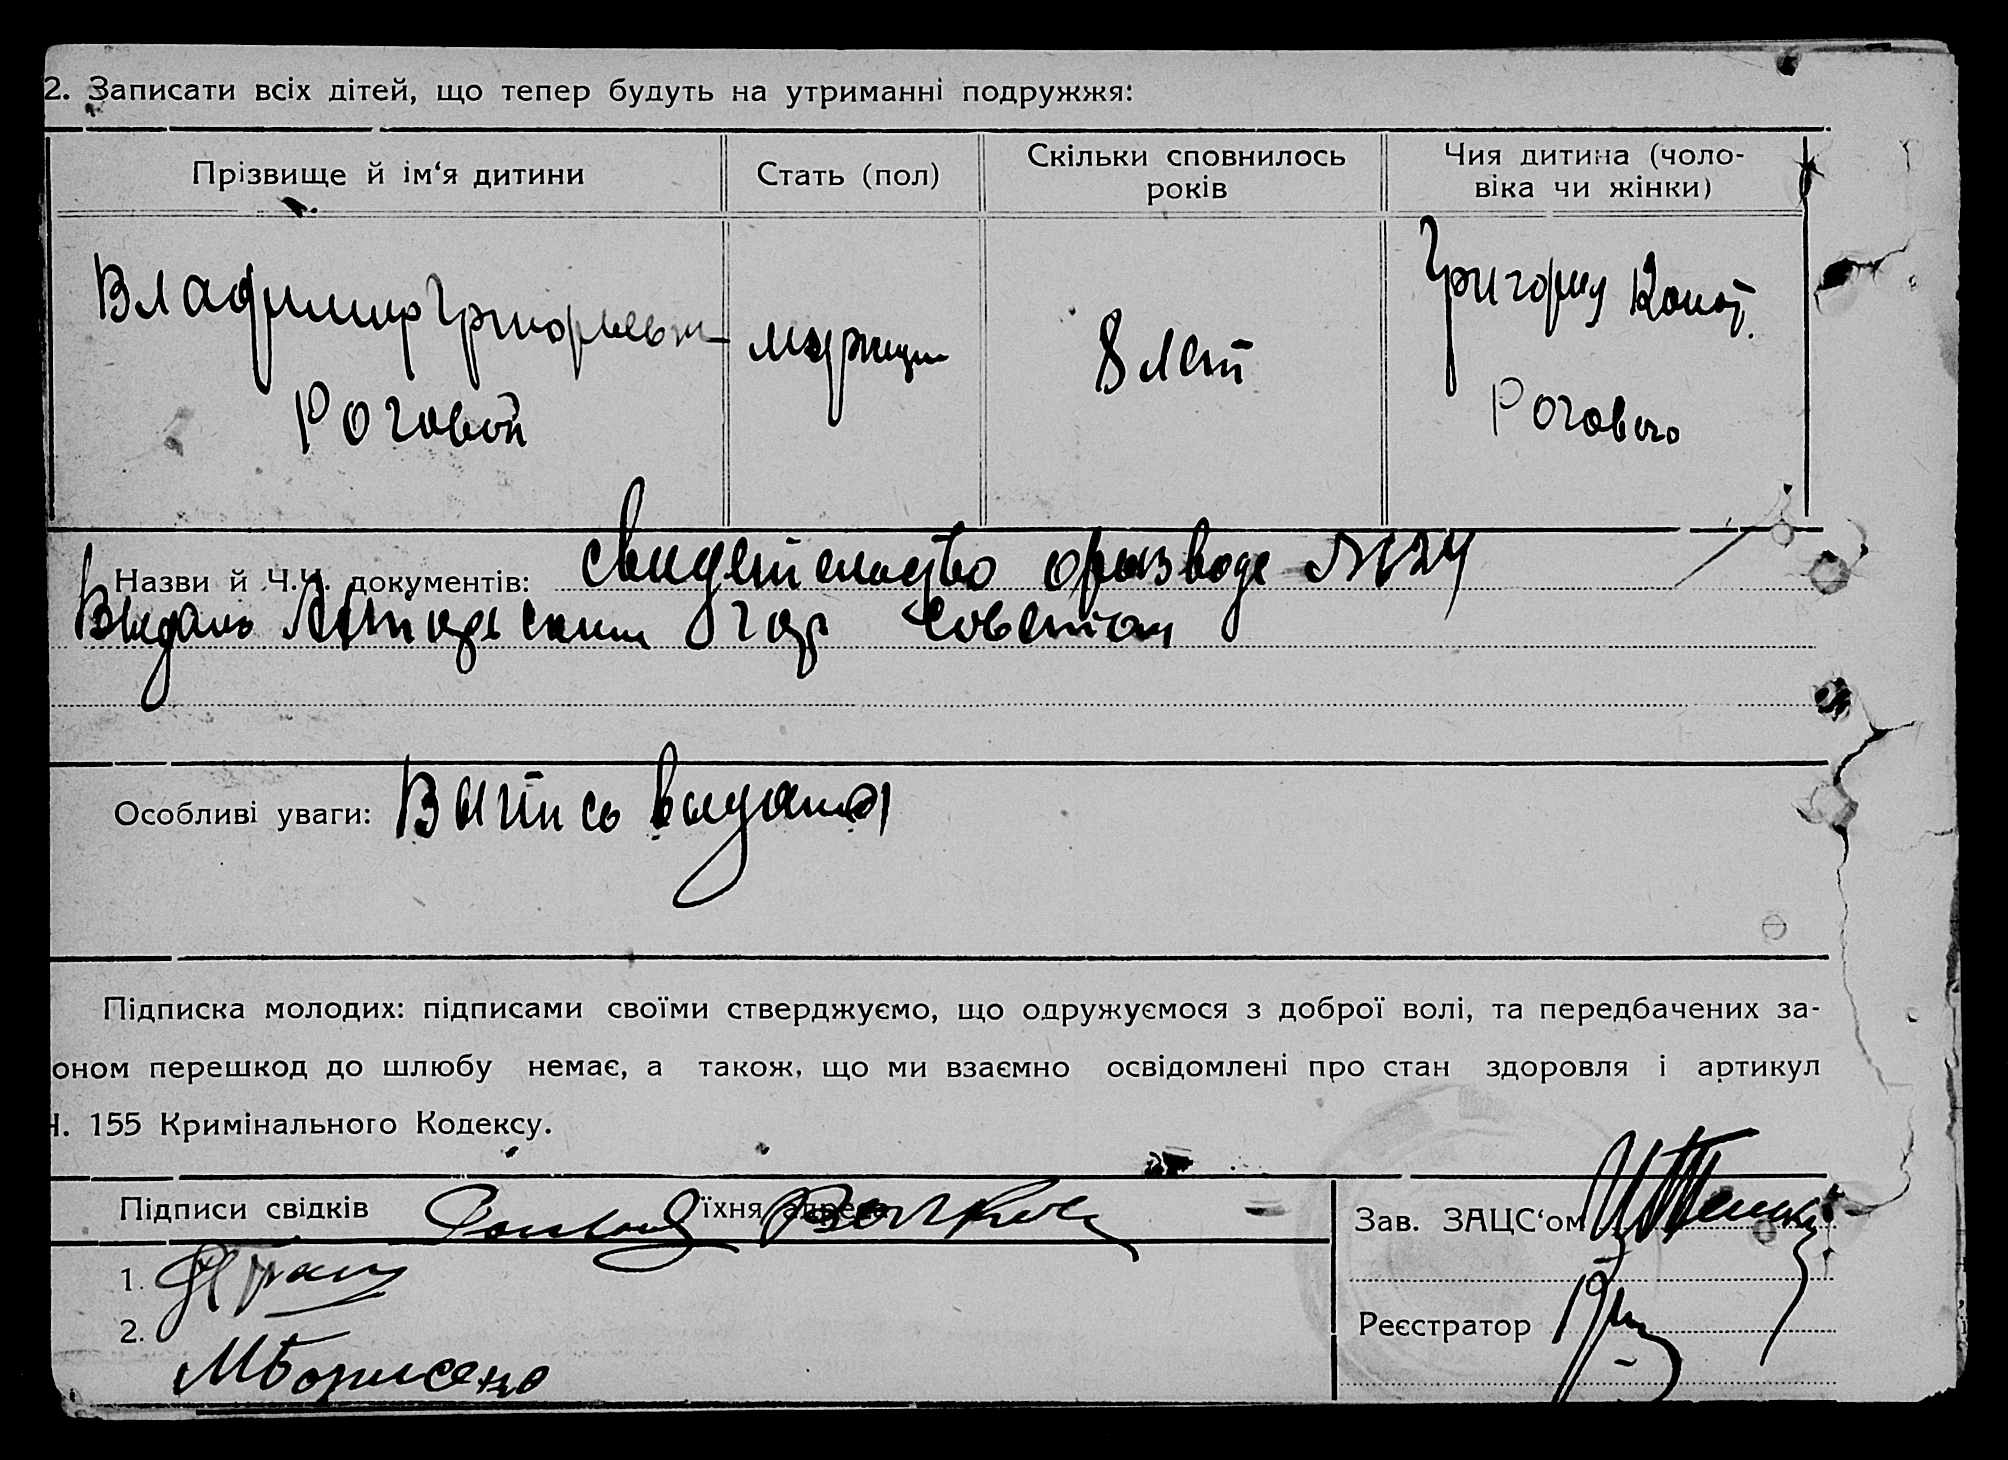 2. Записати всіх дітей, що тепер будуть на утриманні подружжя:
Прізвище й ім‘я дитини
Стать (пол)
Скільки сповнилось
років
Чия дитина (чоло-
віка чи жінки)
Владимир Григорьевич
Роговой
мужщин
8 лет
Григорий
Рогового
Назви й Ч.Ч. документів: свидетельство о разводе №
горсоветом
Особливі уваги: Выпись выдана
Підписка молодих: підписами своїми стверджуємо, що одружуємося з доброї волі, та передбачених за-
оном перешкод до шлюбу немає, а також, що ми взаємно освідомлені про стан здоровля і артикул
Ч. 155 Кримінального Кодексу.
Підписи свідків їхня адреса
1.
2.
МБорисенко
Зав. ЗАЦС‘ом
Реєстратор